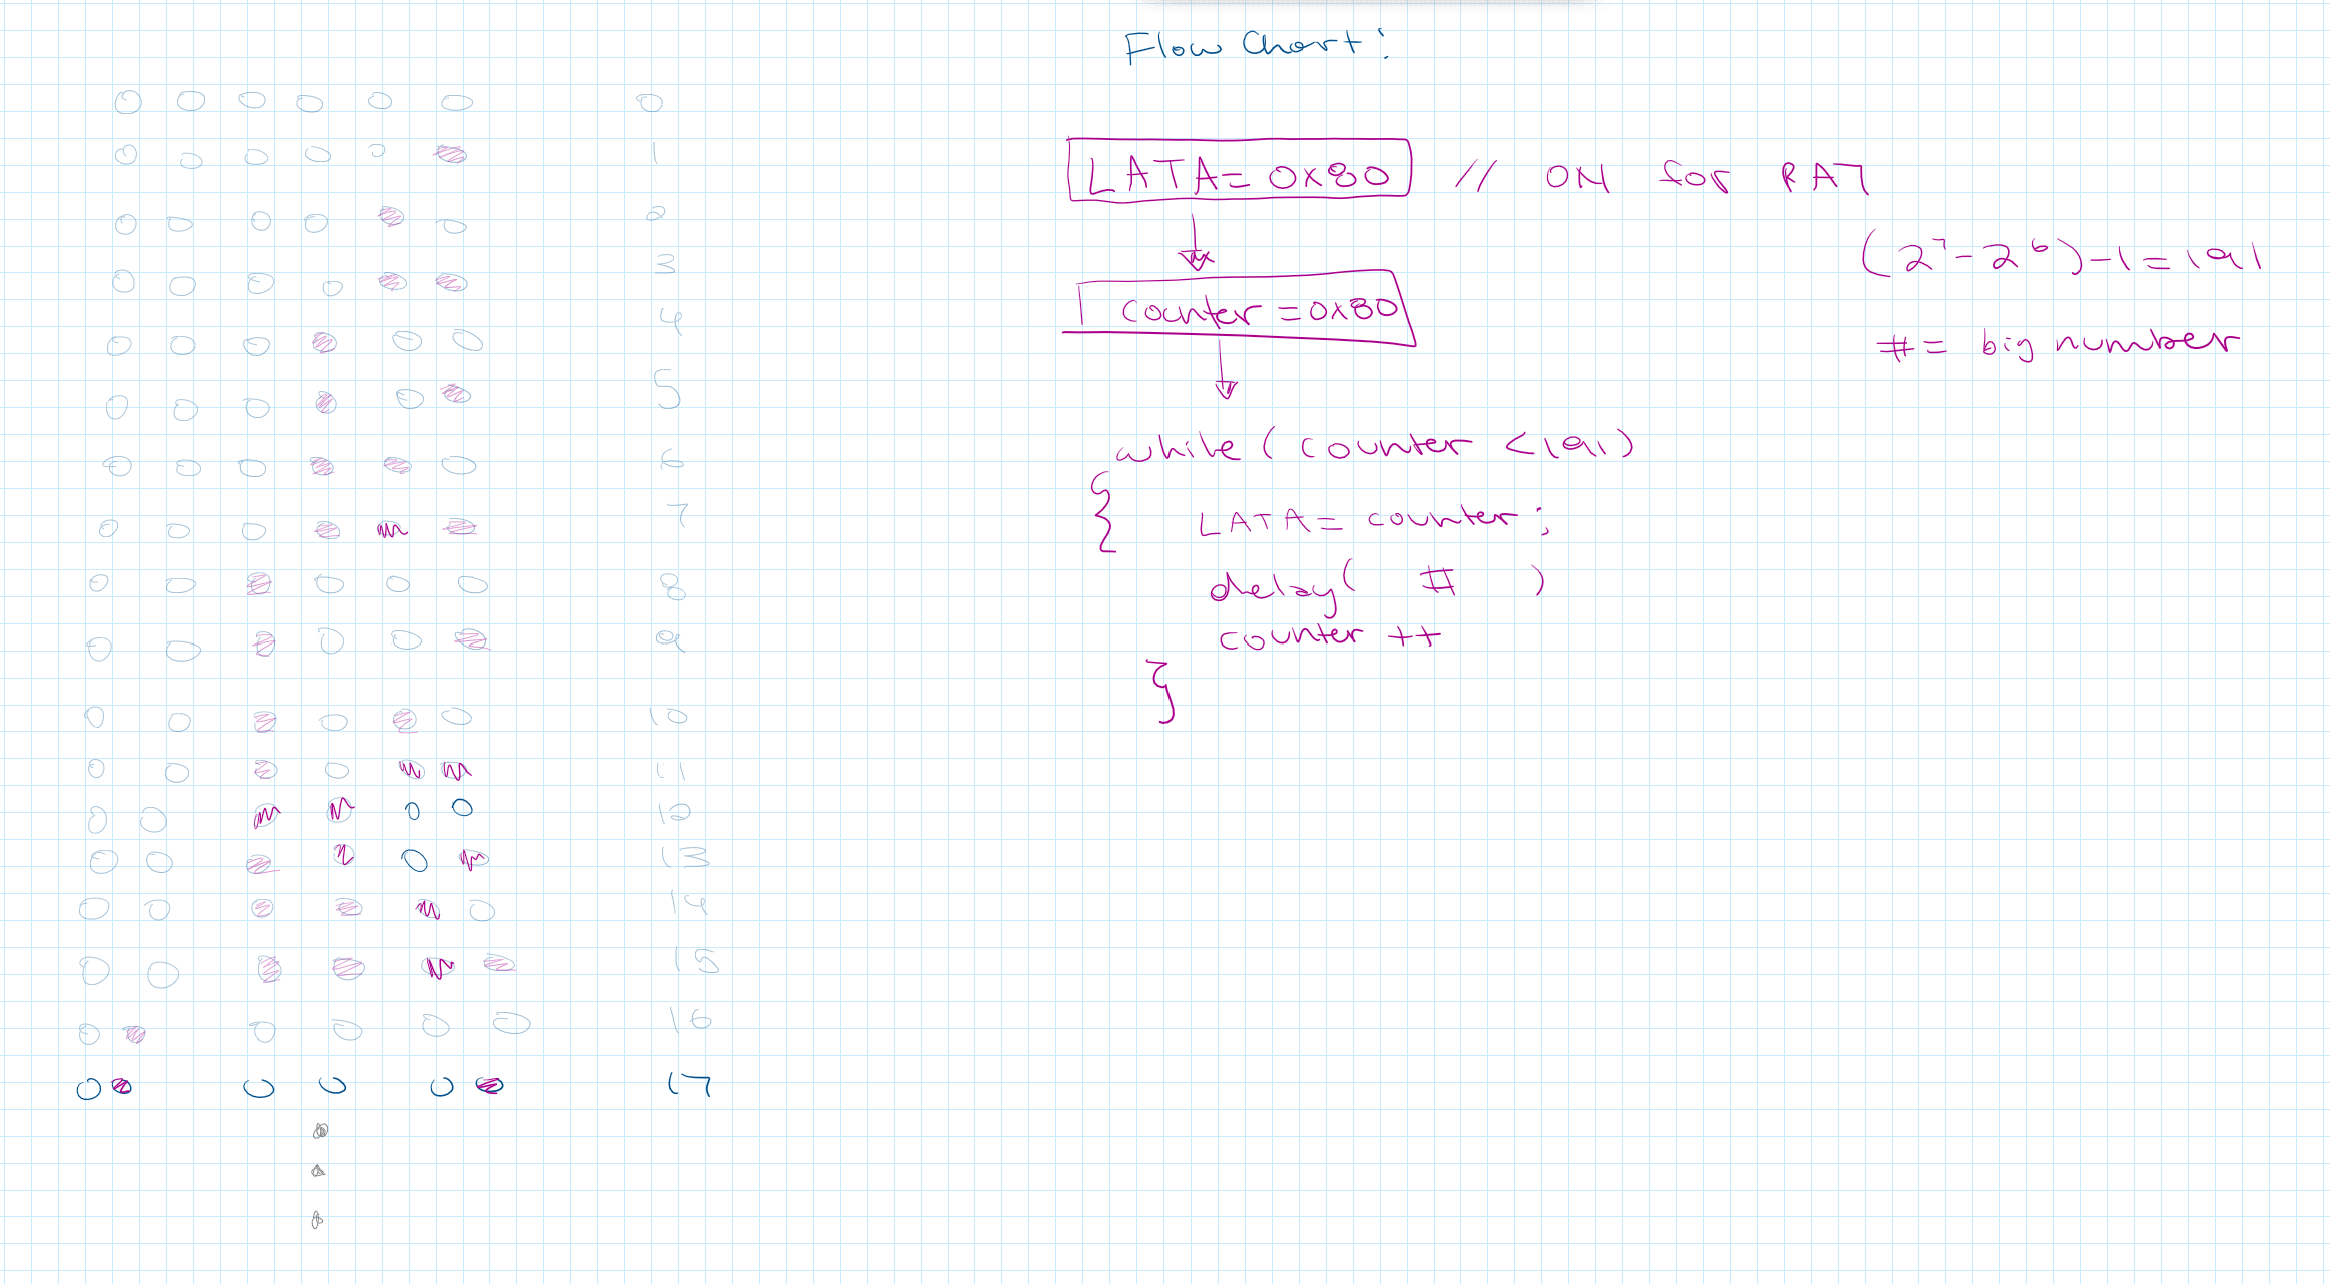 Flow Chart:
0
1
2
3
4
5
6
7
8
9
10
11
12
13
14
15
16
17
LATA = 0x80 // ON for RA7
counter = 0x80
(2^7 - 2^6) - 1 = 191
# = big number
while ( counter < 191 )
{
LATA = counter ;
delay( # )
counter ++
}